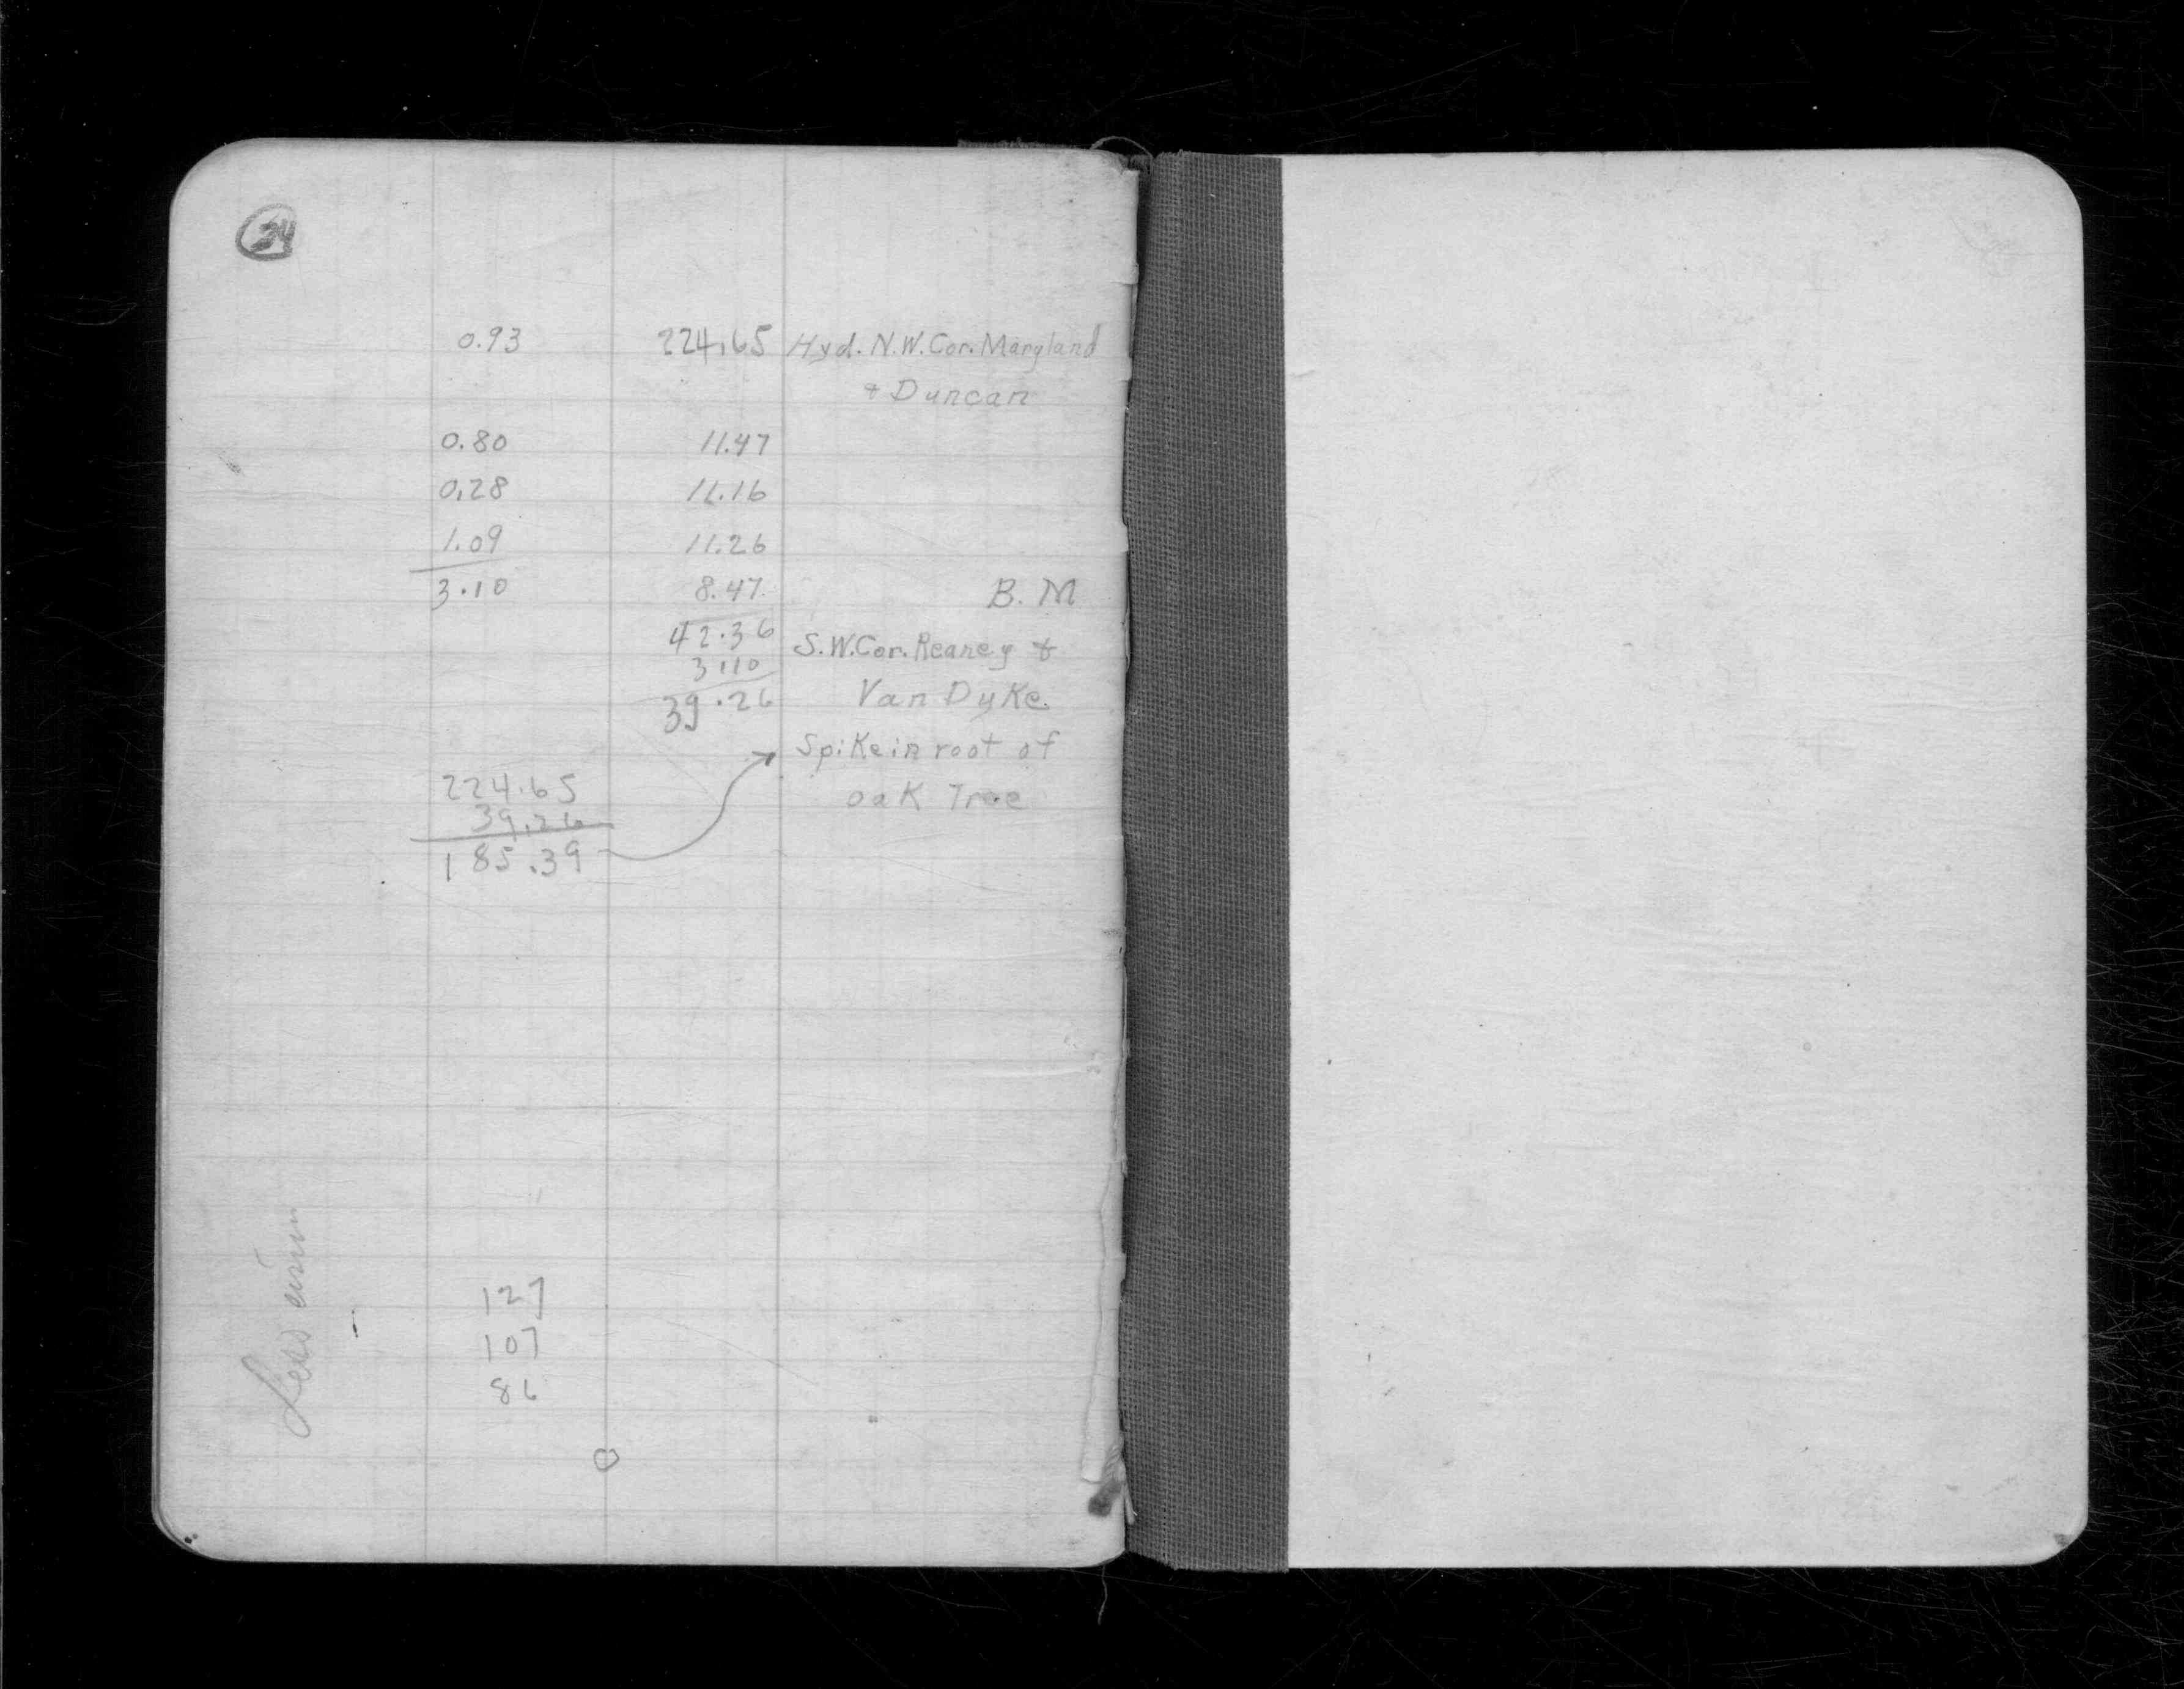 24
0.93 224.65 Hyd. N.W. Cor. Maryland
& Duncan
0.80 11.47
0.28 11.16
1.09 11.26
3.10 8.47 B. M
42.36 S.W. Cor. Reaney &
3.10
39.26 Van Dyke
Spike in root of
224.65 oak Tree
39.26
185.39
127
107
86